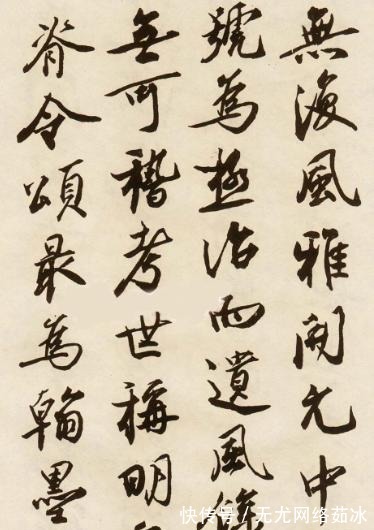 無復風雅開元中
號為極治而遺風
無可稽考世稱明
脊令頌最為翰墨
快传号/无尤网络茹冰